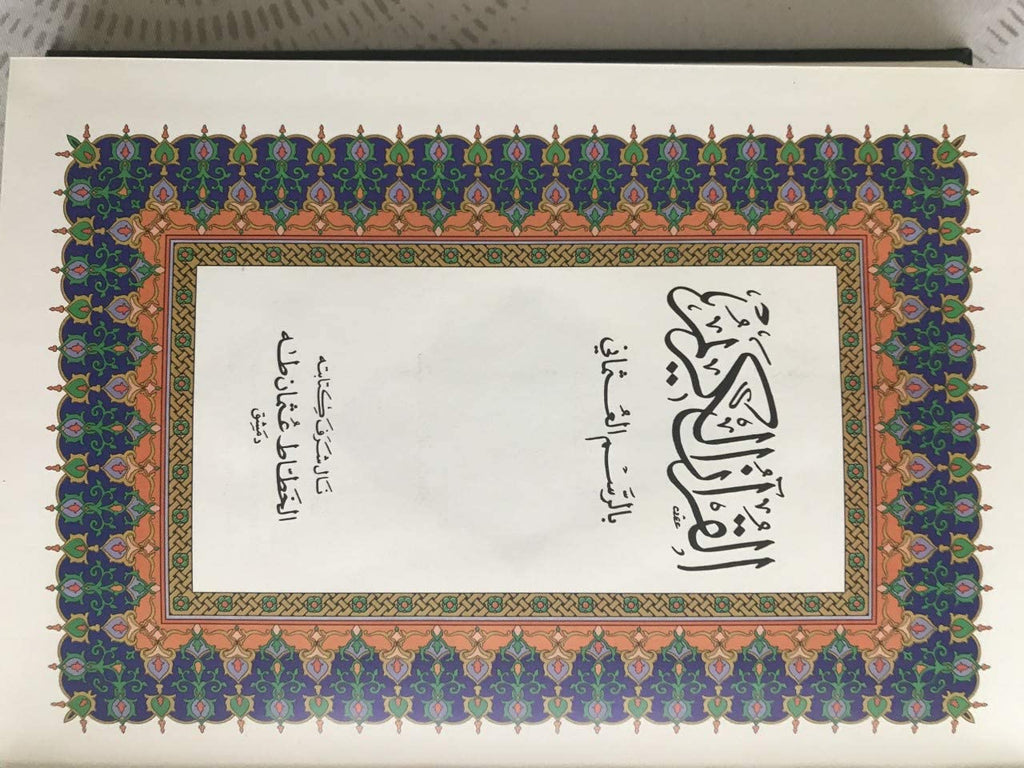 القرآن الكريم
بالرَّسْم العُثماني
نَال شَرَف كِتَابته
الخَطّاط عُثمان طٰه
دمَشِق